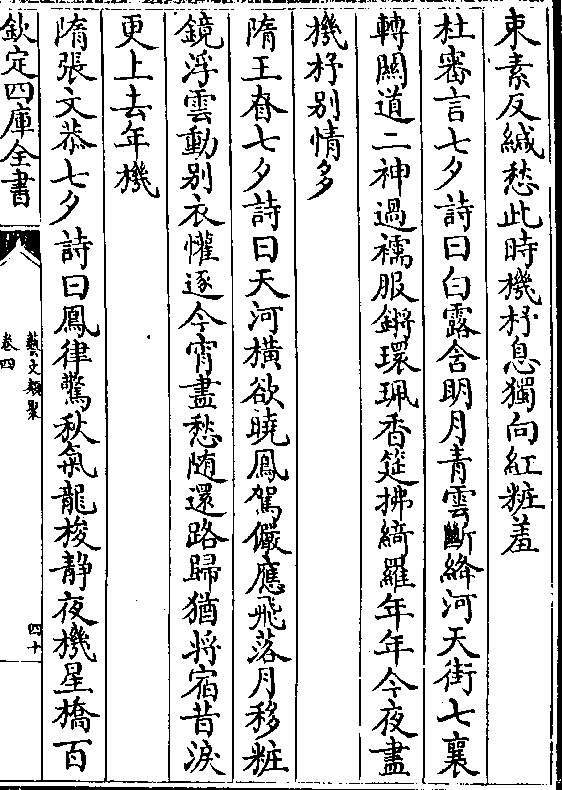 束素反緘愁此時機杼息獨向紅粧羞
杜審言七夕詩曰白露含明月青雲斷絳河天街七襄
轉闕道二神過襦服鏘環珮香筵拂綺羅年年今夜盡
機杼別情多
隋王眘七夕詩曰天河橫欲曉鳳駕儼應飛落月移粧
鏡浮雲動別衣懽逐今宵盡愁随還路歸猶將宿昔淚
更上去年機
隋張文恭七夕詩曰鳳律驚秋氣龍梭静夜機星橋百
欽定四庫全書
藝文類聚
卷四
四十